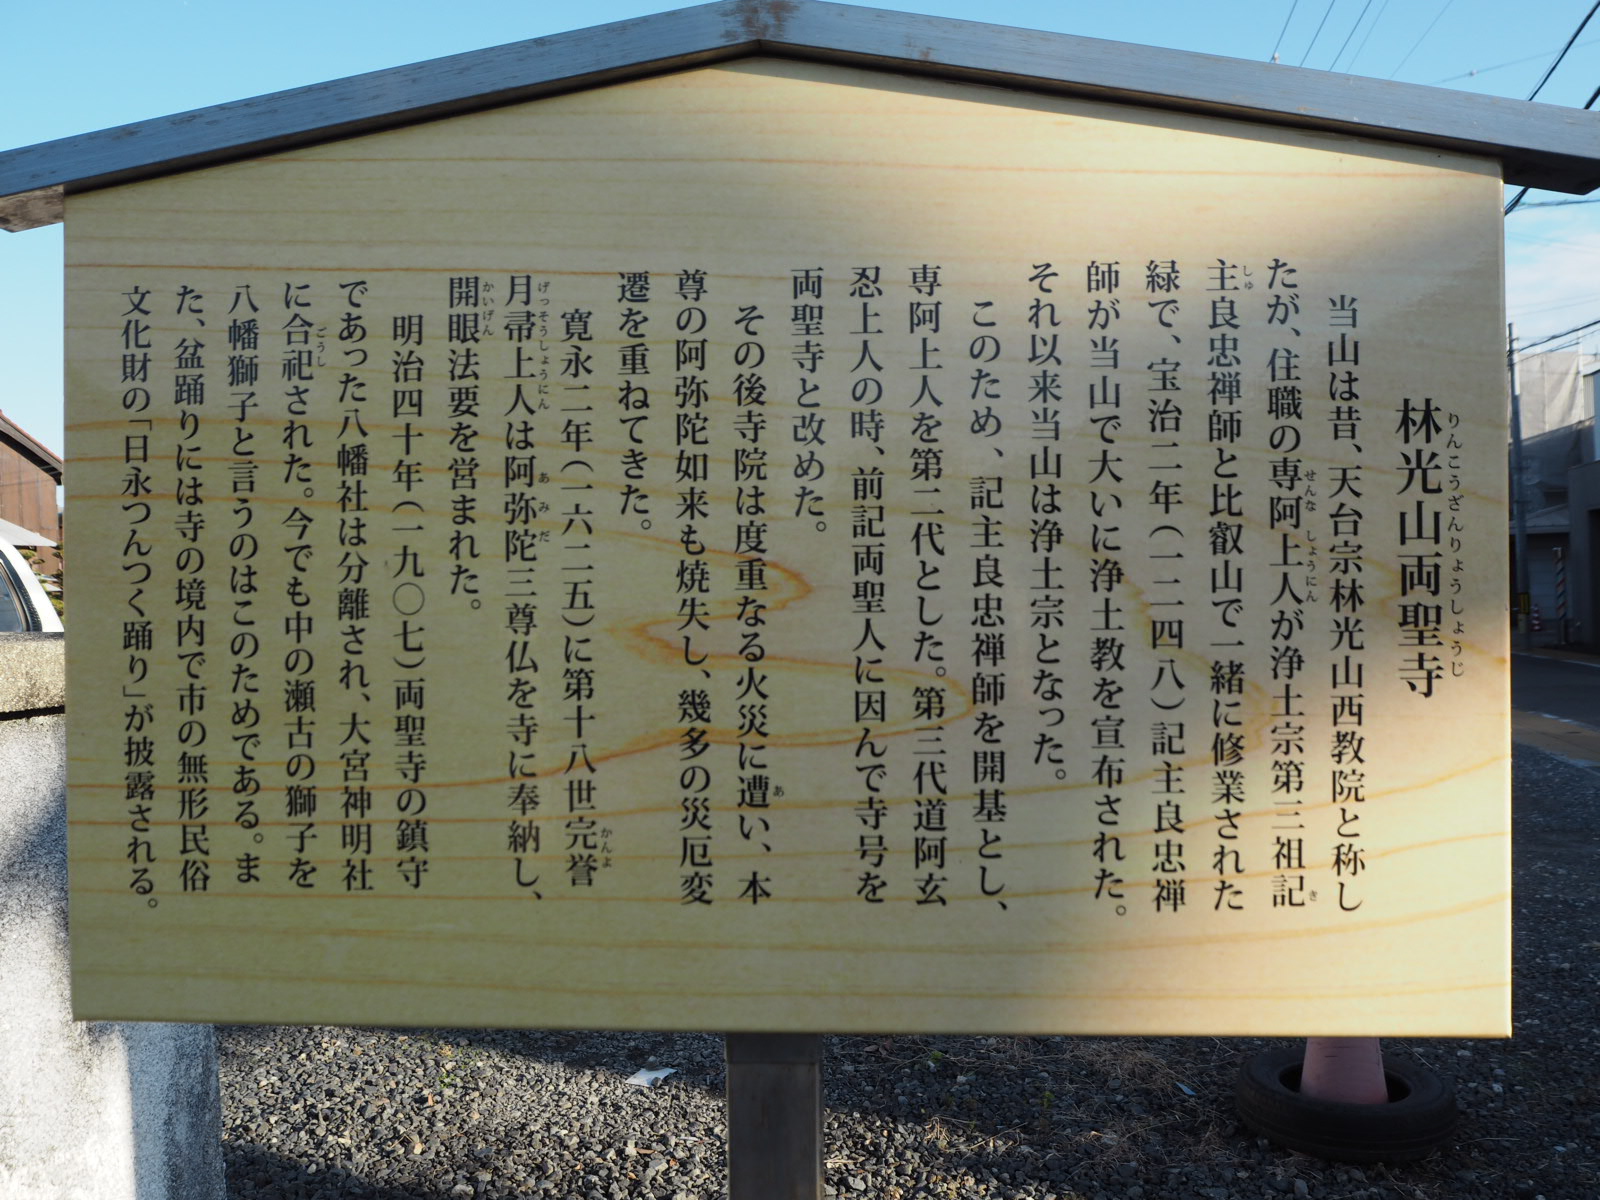 林光山両聖寺
りんこうざんりょうしょうじ
当山は昔、天台宗林光山西教院と称し
たが、住職の専阿上人が浄土宗第三祖記
せんな しょうにん き
主良忠禅師と比叡山で一緒に修業された
しゅ
緑で、宝治二年(一二四八)記主良忠禅
師が当山で大いに浄土教を宣布された。
それ以来当山は浄土宗となった。
このため、記主良忠禅師を開基とし、
専阿上人を第二代とした。第三代道阿玄
忍上人の時、前記両聖人に因んで寺号を
両聖寺と改めた。
その後寺院は度重なる火災に遭い、本
あ
尊の阿弥陀如来も焼失し、幾多の災厄変
遷を重ねてきた。
寛永二年(一六二五)に第十八世完誉
かんよ
月帚上人は阿弥陀三尊仏を寺に奉納し、
げっそうしょうにん あみだ
開眼法要を営まれた。
かいげん
明治四十年(一九〇七)両聖寺の鎮守
であった八幡社は分離され、大宮神明社
に合祀された。今でも中の瀬古の獅子を
ごうし
八幡獅子と言うのはこのためである。ま
た、盆踊りには寺の境内で市の無形民俗
文化財の「日永つんつく踊り」が披露される。